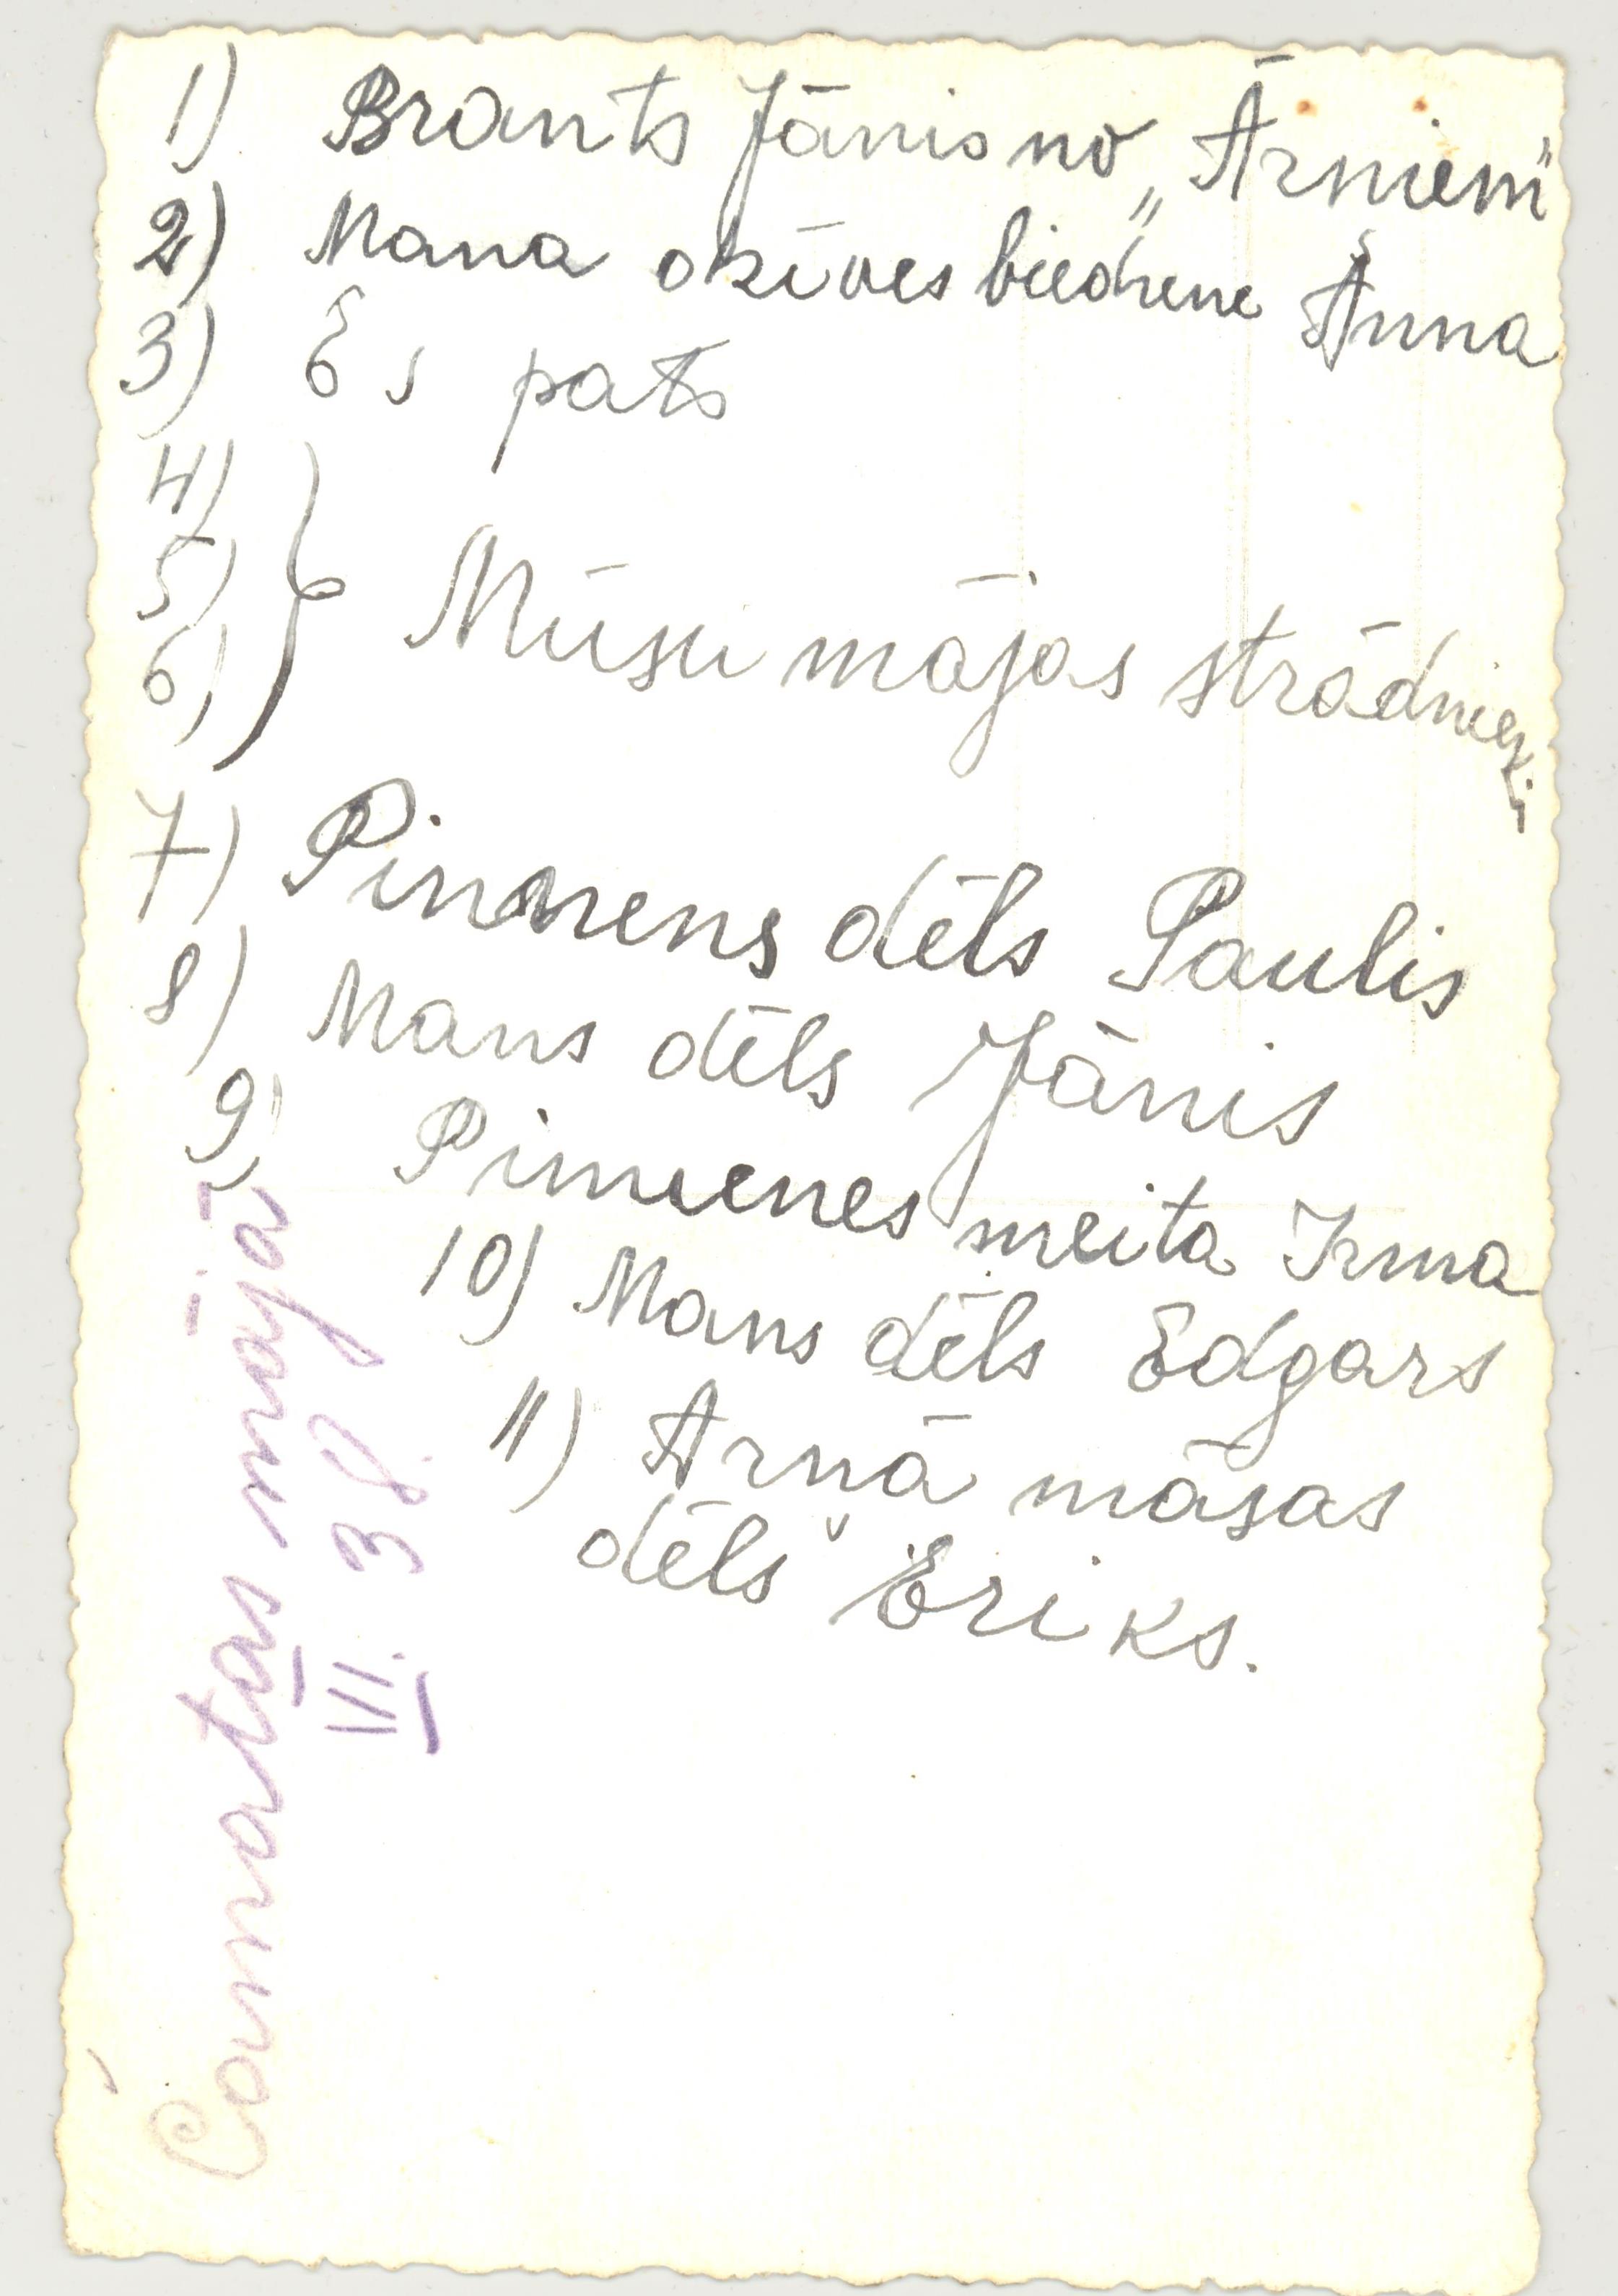 1) Brants Jānis no „Ārniem"
2) Mana dzīves biedrene Anna
3) Es pats
4)
5)
6) } Mūsu mājas strādnieki
7) Pinnens dēls Paulis
8) Mans dēls Jānis
9) Pinnenes meita Irma
10) Mans dēls Edgars
11) Arņā māsas
dēls Ēriks.
Cāmatas mājā
VII. 38.